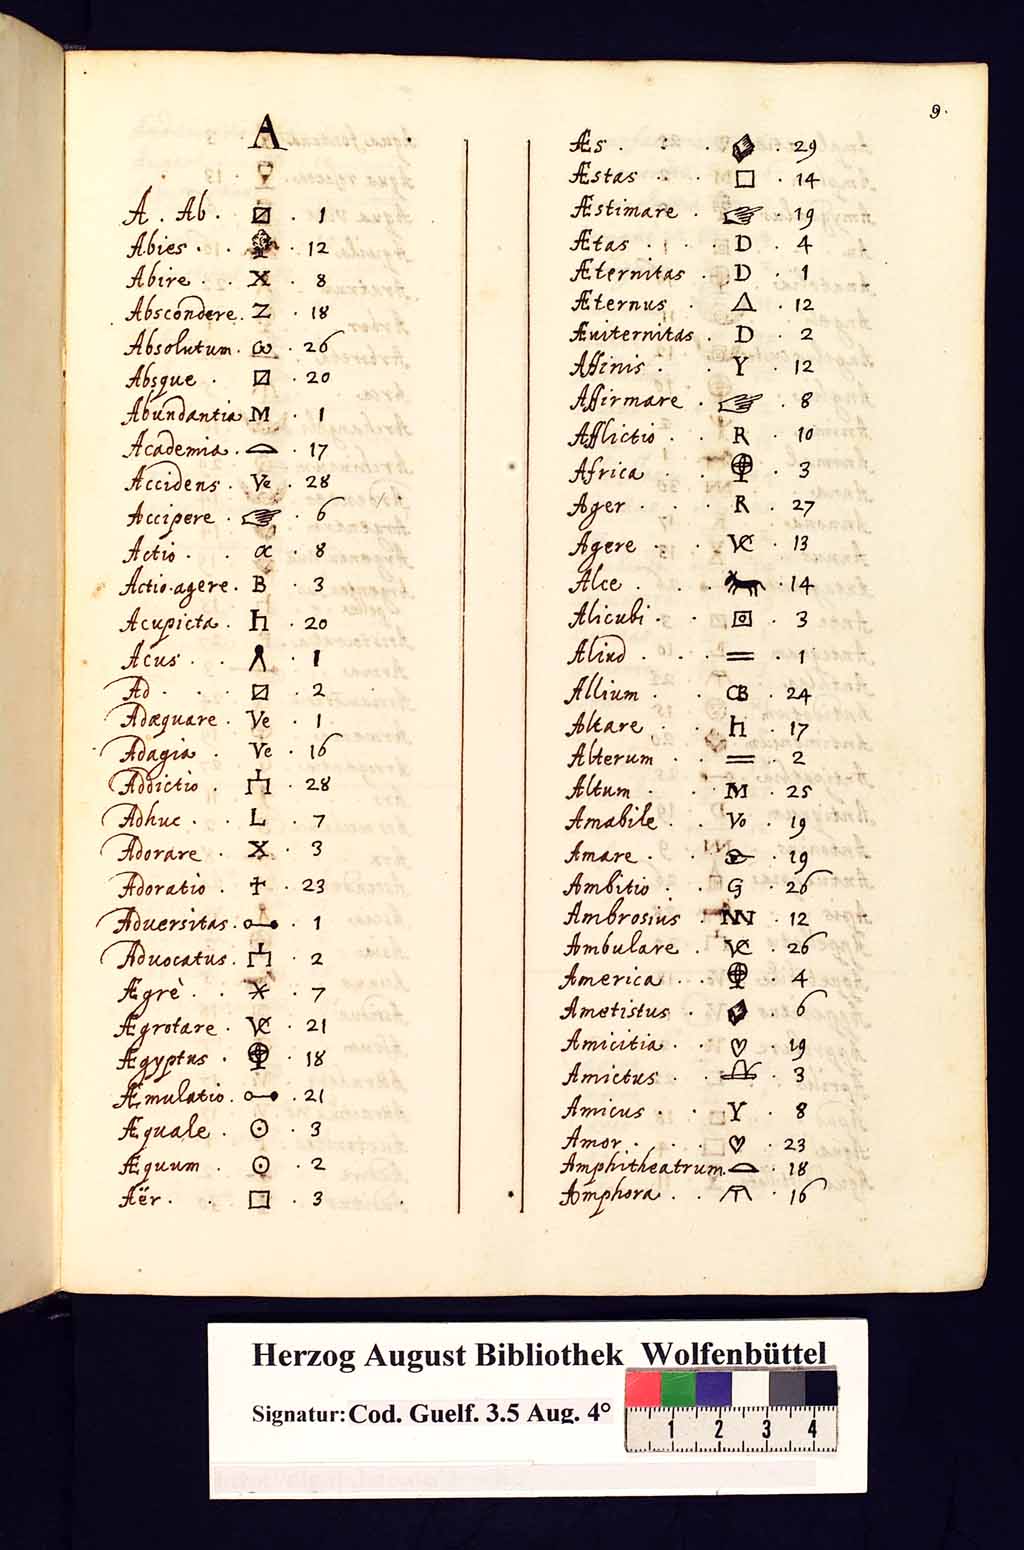 9.
A
A . Ab . 1
Abies . . 12
Abire . . X . 8
Abscondere . Z . 18
Absolutum . ω . 26
Absque . . 20
Abundantia M . 1
Academia . . 17
Accidens . Ve . 28
Accipere . . 6
Actio . . α . 8
Actio . agere . B . 3
Acupicta . ħ . 20
Acus . . . 1
Ad . . . 2
Adæquare . Ve . 1
Adagia . Ve . 16
Addictio . . 28
Adhuc . . L . 7
Adorare . X . 3
Adoratio . † . 23
Aduersitas . . 1
Aduocatus . . 2
Ægrè . . * . 7
Ægrotare . . 21
Ægyptus . . 18
Æmulatio . . 21
Æquale . ⊙ . 3
Æquum . ⊙ . 2
Aër . . □ . 3 .
Æs . . . 29
Æstas . . □ . 14
Æstimare . ☞ . 19
Ætas . . . D . 4
Æternitas . D . 1
Æternus . △ . 12
Æuiternitas . D . 2
Affinis . . Y . 12
Affirmare . ☞ . 8
Afflictio . . R . 10
Africa . . 3
Ager . . . R . 27
Agere . . . 13
Alce . . . 14
Alicubi . . . 3
Aliud . . . = . 1
Allium . . . 24
Altare . . ħ . 17
Alterum . . = . 2
Altum . . . M . 25
Amabile . . Vo . 19
Amare . . . 19
Ambitio . . G . 26
Ambrosius . . 12
Ambulare . . 26
America . . . 4
Ametistus . . 6
Amicitia . . ♡ . 19
Amictus . . . 3
Amicus . . Y . 8
Amor . . . ♡ . 23
Amphitheatrum . . 18
Amphora . . . 16
Herzog August Bibliothek Wolfenbüttel
Signatur: Cod. Guelf. 3.5 Aug. 4°
1 2 3 4